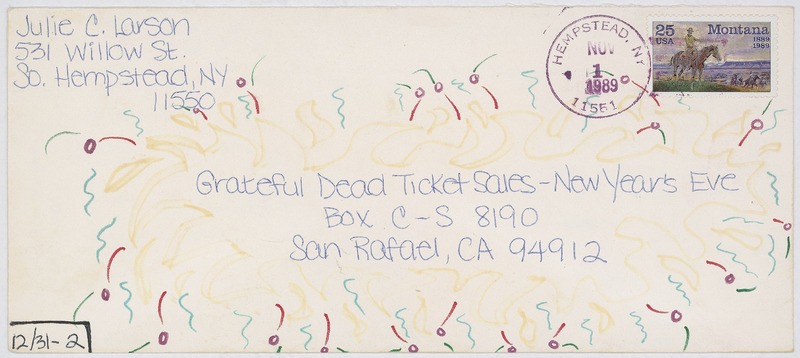 Julie C. Larson
531 Willow St.
So. Hempstead, NY
11550
HEMPSTEAD, NY
NOV
1
1989
11551
25
USA
Montana
1889
1989
Grateful Dead Ticket Sales - New Year's Eve
Box C-S 8190
San Rafael, CA 94912
12/31-2